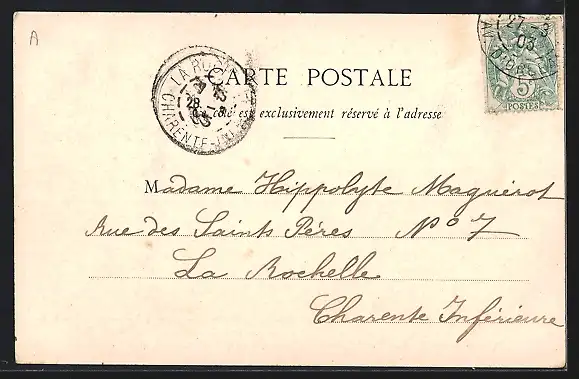 A
CARTE POSTALE
Ce côté est exclusivement réservé à l'adresse
CHARENTE-INF
28
03
27 -3
03
5
POSTES
Madame Hippolyte Maguérot
Rue des Saints Pères No 7
La Rochelle
Charente Inférieure